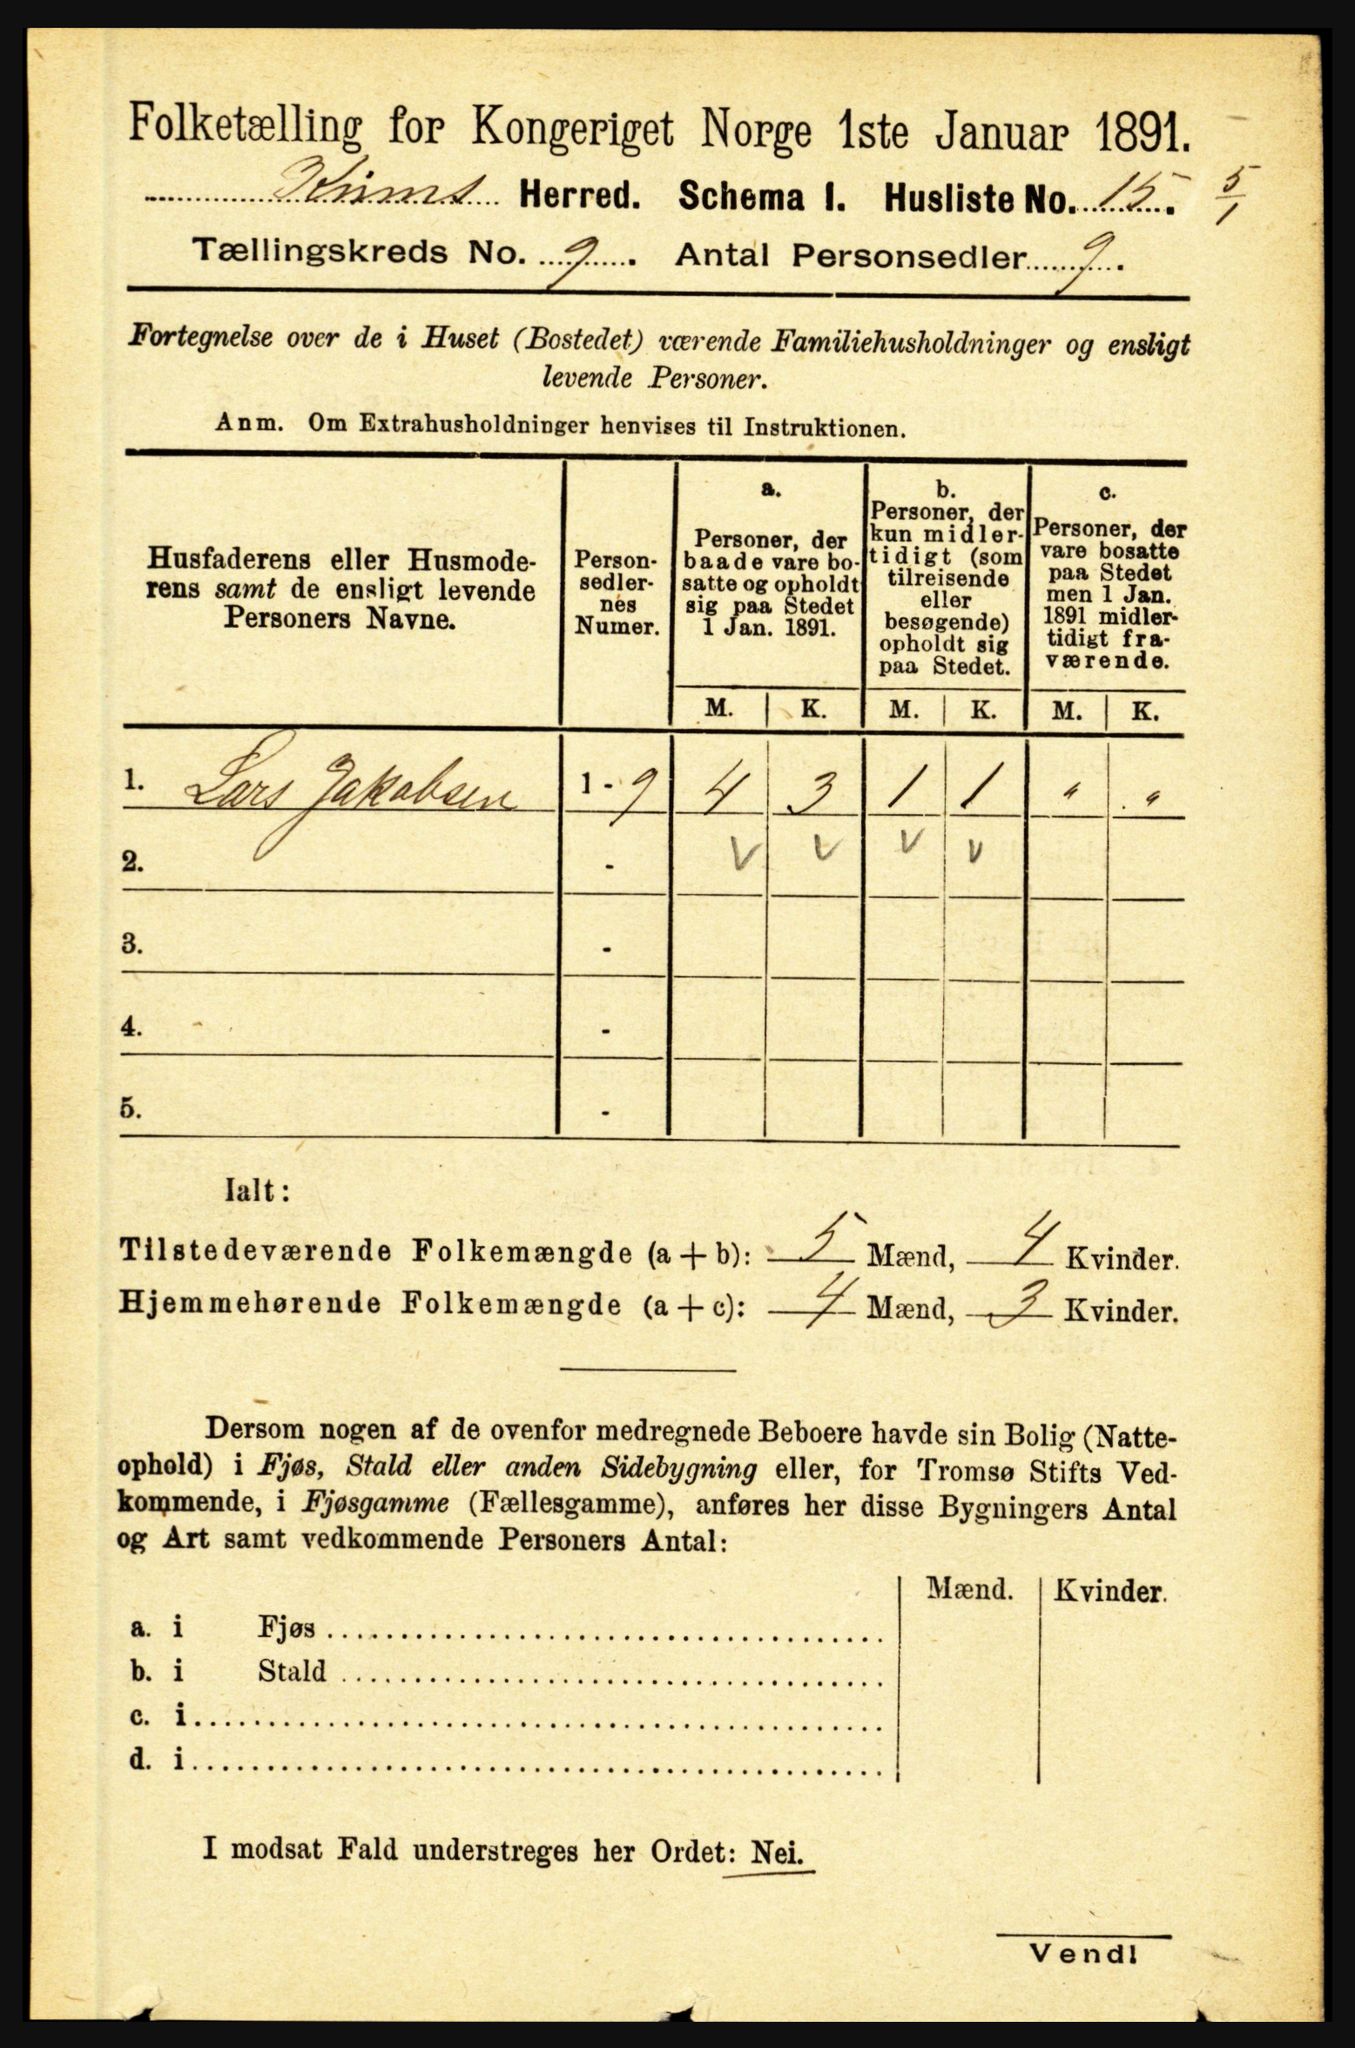 Folketælling for Kongeriget Norge 1ste Januar 1891.
Kinns Herred. Schema I. Husliste No. 15. 5/1
Tællingskreds No. 9. Antal Personsedler 9.
Fortegnelse over de i Huset (Bostedet) værende Familiehusholdninger og ensligt
levende Personer.
Anm. Om Extrahusholdninger henvises til Instruktionen.
Husfaderens eller Husmode-
rens samt de ensligt levende
Personers Navne.
Person-
sedler-
nes
Numer.
a.
Personer, der
baade vare bo-
satte og opholdt
sig paa Stedet
1 Jan. 1891.
b.
Personer, der
kun midler-
tidigt (som
tilreisende
eller
besøgende)
opholdt sig
paa Stedet.
c.
Personer, der
vare bosatte
paa Stedet
men 1 Jan.
1891 midler-
tidigt fra-
værende.
M. K. M. K. M. K.
1. Lars Jakobsen 1 - 9 4 3 1 1 " "
2. - v v v v
3. -
4. -
5. -
Ialt:
Tilstedeværende Folkemængde (a + b): 5 Mænd, 4 Kvinder.
Hjemmehørende Folkemængde (a + c): 4 Mænd, 3 Kvinder.
Dersom nogen af de ovenfor medregnede Beboere havde sin Bolig (Natte-
ophold) i Fjøs, Stald eller anden Sidebygning eller, for Tromsø Stifts Ved-
kommende, i Fjøsgamme (Fællesgamme), anføres her disse Bygningers Antal
og Art samt vedkommende Personers Antal:
Mænd. Kvinder.
a. i Fjøs
b. i Stald
c. i
d. i
I modsat Fald understreges her Ordet: Nei.
Vend!